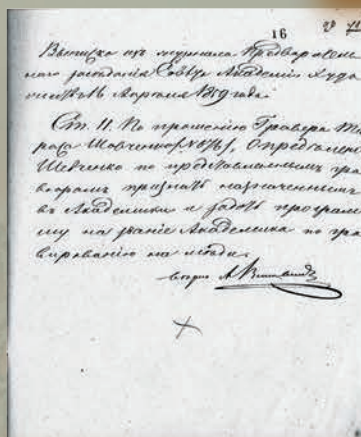 16
Выписка изъ журнала Предваритель
наго заседанія Совѣта Академіи Худо
16 Апрѣля 1859 года.
Ст. 11. По прошенію Гравера Та
раса Шевченко, Опредѣлено
Шевченко по представленнымъ гра
вюрамъ признать назначеннымъ
въ Академики и задать програм
му на званіе Академика по гра
вированію на мѣди.